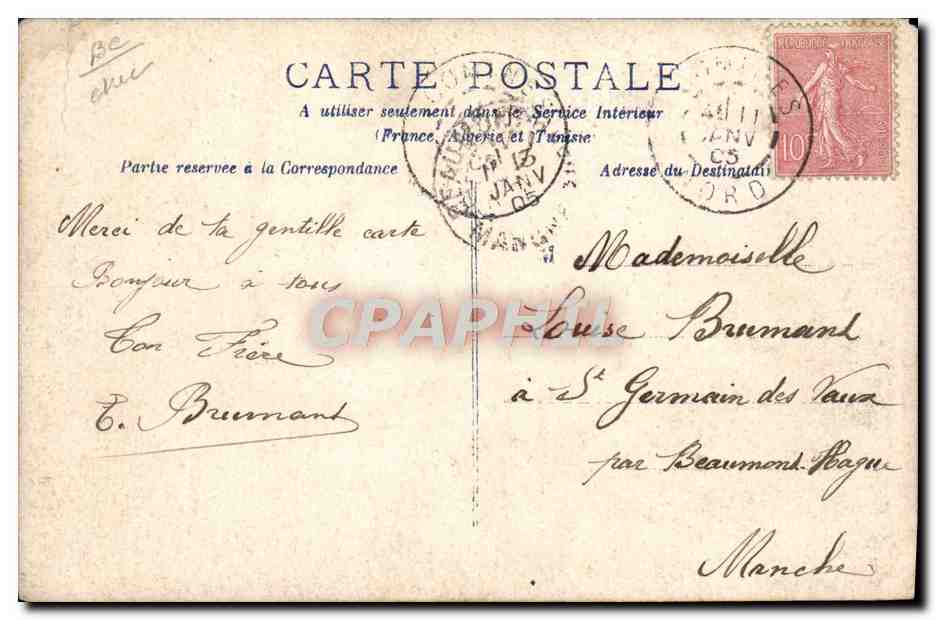 BC
CARTE POSTALE
A utiliser seulement dans le Service Intérieur
(France, Algerie et Tunisie)
Partie reservee à la Correspondance
Adresse du Destinataire
REPUBLIQUE FRANÇAISE
10
11
JANV
05
NORD
13
JANV
05
MANCHE
Merci de ta gentille carte
Bonjour à tous
Ton Frère
E. Brumant
Mademoiselle
Louise Brumant
à St Germain des Vaux
par Beaumont-Hague
Manche
CPAPHIL